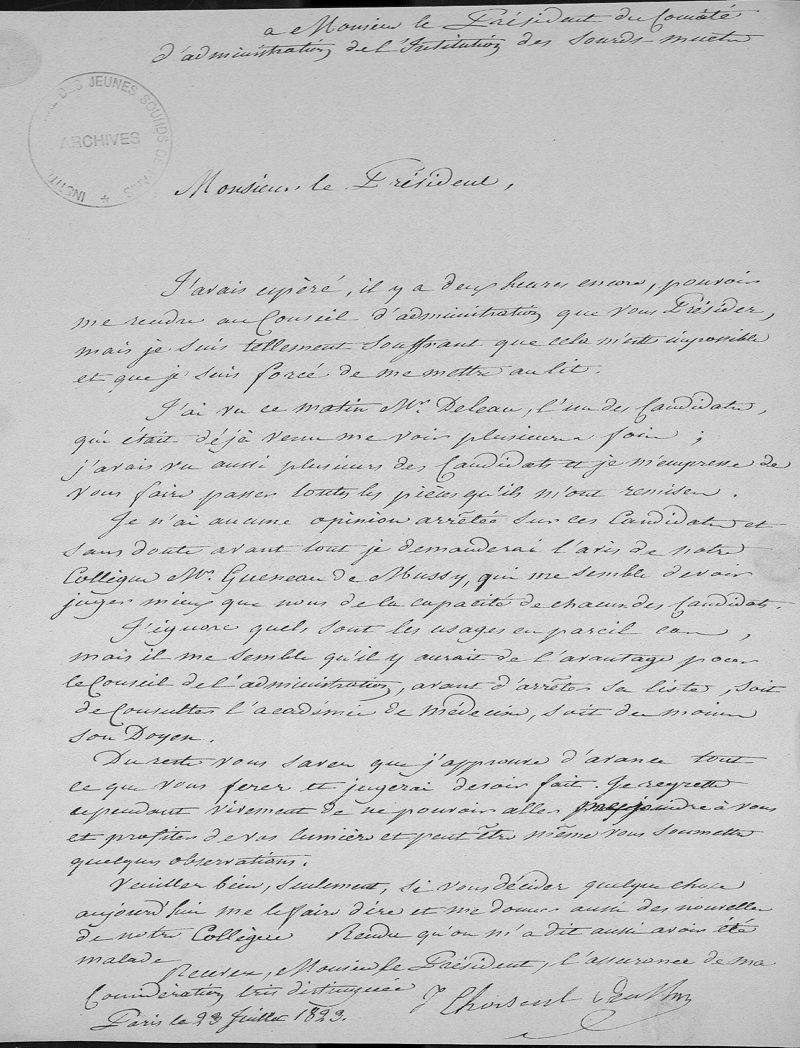 a Monsieur le Président du Comité
d'administration de l'Institution des Sourds muets
INSTITUT DES JEUNES SOURDS DE PARIS
ARCHIVES
Monsieur le Président,
J'avais espéré, il y a deux heures encore, pouvoir
me rendre au Conseil d'administration que vous Présidez,
mais je suis tellement souffrant que cela m'est impossible
et que je suis forcé de me mettre au lit.
J'ai vu ce matin Mr. Deleau, l'un des Candidats,
qui était déjà venu me voir plusieurs fois ;
j'avais vu aussi plusieurs des Candidats et je m'empresse de
vous faire passer toutes les pièces qu'ils m'ont remises.
Je n'ai aucune opinion arrêtée sur ces Candidats et
sans doute avant tout je demanderai l'avis de notre
Collègue Mr. Gueneau de Mussy, qui me semble devoir
juger mieux que nous de la capacité de chacun des Candidats.
J'ignore quels sont les usages en pareil cas,
mais il me semble qu'il y aurait de l'avantage pour
le Conseil de l'administration, avant d'arrêter sa liste, soit
de Consulter l'académie de médecine, soit du moins
son Doyen.
Du reste vous savez que j'approuve d'avance tout
ce que vous ferez et jugerai devoir fait. Je regrette
cependant vivement de ne pouvoir aller me joindre à vous
et profiter de vos lumières et peut être même vous soumettre
quelques observations.
Veuillez bien, seulement, si vous décidez quelque chose
aujourd'hui me le faire dire et me donner aussi des nouvelles
de notre Collègue Rendu qu'on m'a dit aussi avoir été
malade
Recevez, Monsieur le Président, l'assurance de ma
Considération très distinguée
Paris le 23 Juillet 1823.